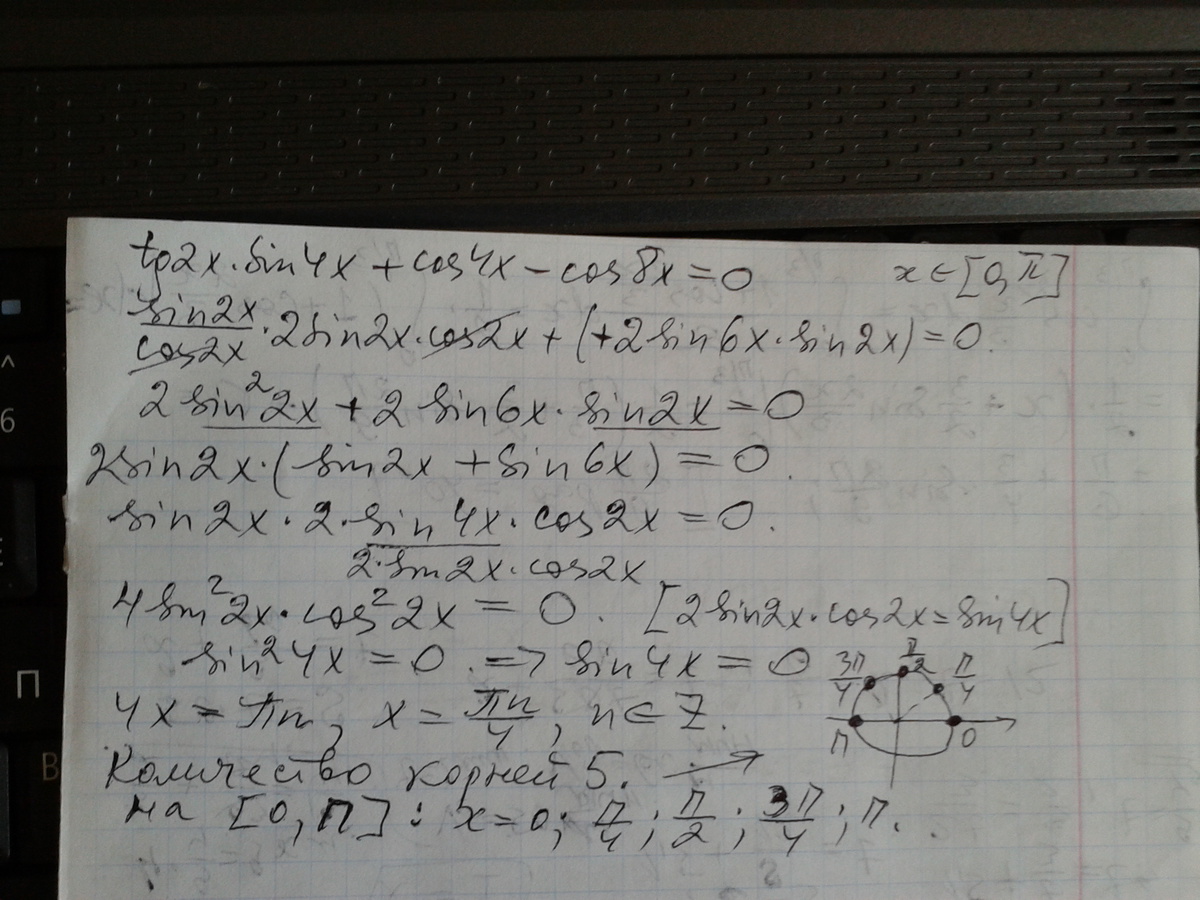 tg2x·sin4x + cos4x − cos8x = 0   x ∈ [0, π]
sin2x/cos2x · 2sin2x·cos2x + (+2sin6x·sin2x) = 0.
2 sin²2x + 2 sin6x·sin2x = 0
2sin2x·(sin2x + sin6x) = 0.
sin2x·2·sin4x·cos2x = 0.
2·sin2x·cos2x
4sin²2x·cos²2x = 0.   [2sin2x·cos2x = sin4x]
sin²4x = 0. => sin4x = 0
4x = πn, x = πn/4, n ∈ Z.
3π/4 π/2 π/4
π 0
Количество корней 5. →
на [0, π]: x = 0; π/4; π/2; 3π/4; π.
^
6
П
В